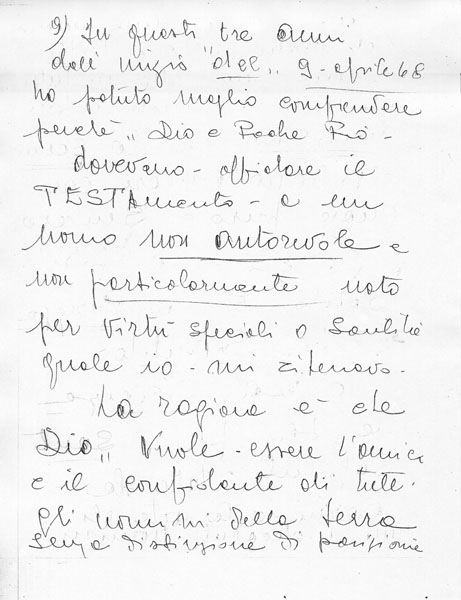 9) In questi tre anni
dall' inizio "del„ 9-aprile 68
ho potuto meglio comprendere
perché „ Dio e Padre Pio -
dovevano - affidare il
TESTAmento - a un
uomo non autorevole e
non particolarmente noto
per virtù speciali o Santità
quale io - mi ritenevo.
La ragione è che
Dio„ Vuole - essere l'amico
e il confidante di tutti.
gli uomini della terra
senza distinzione di posizione